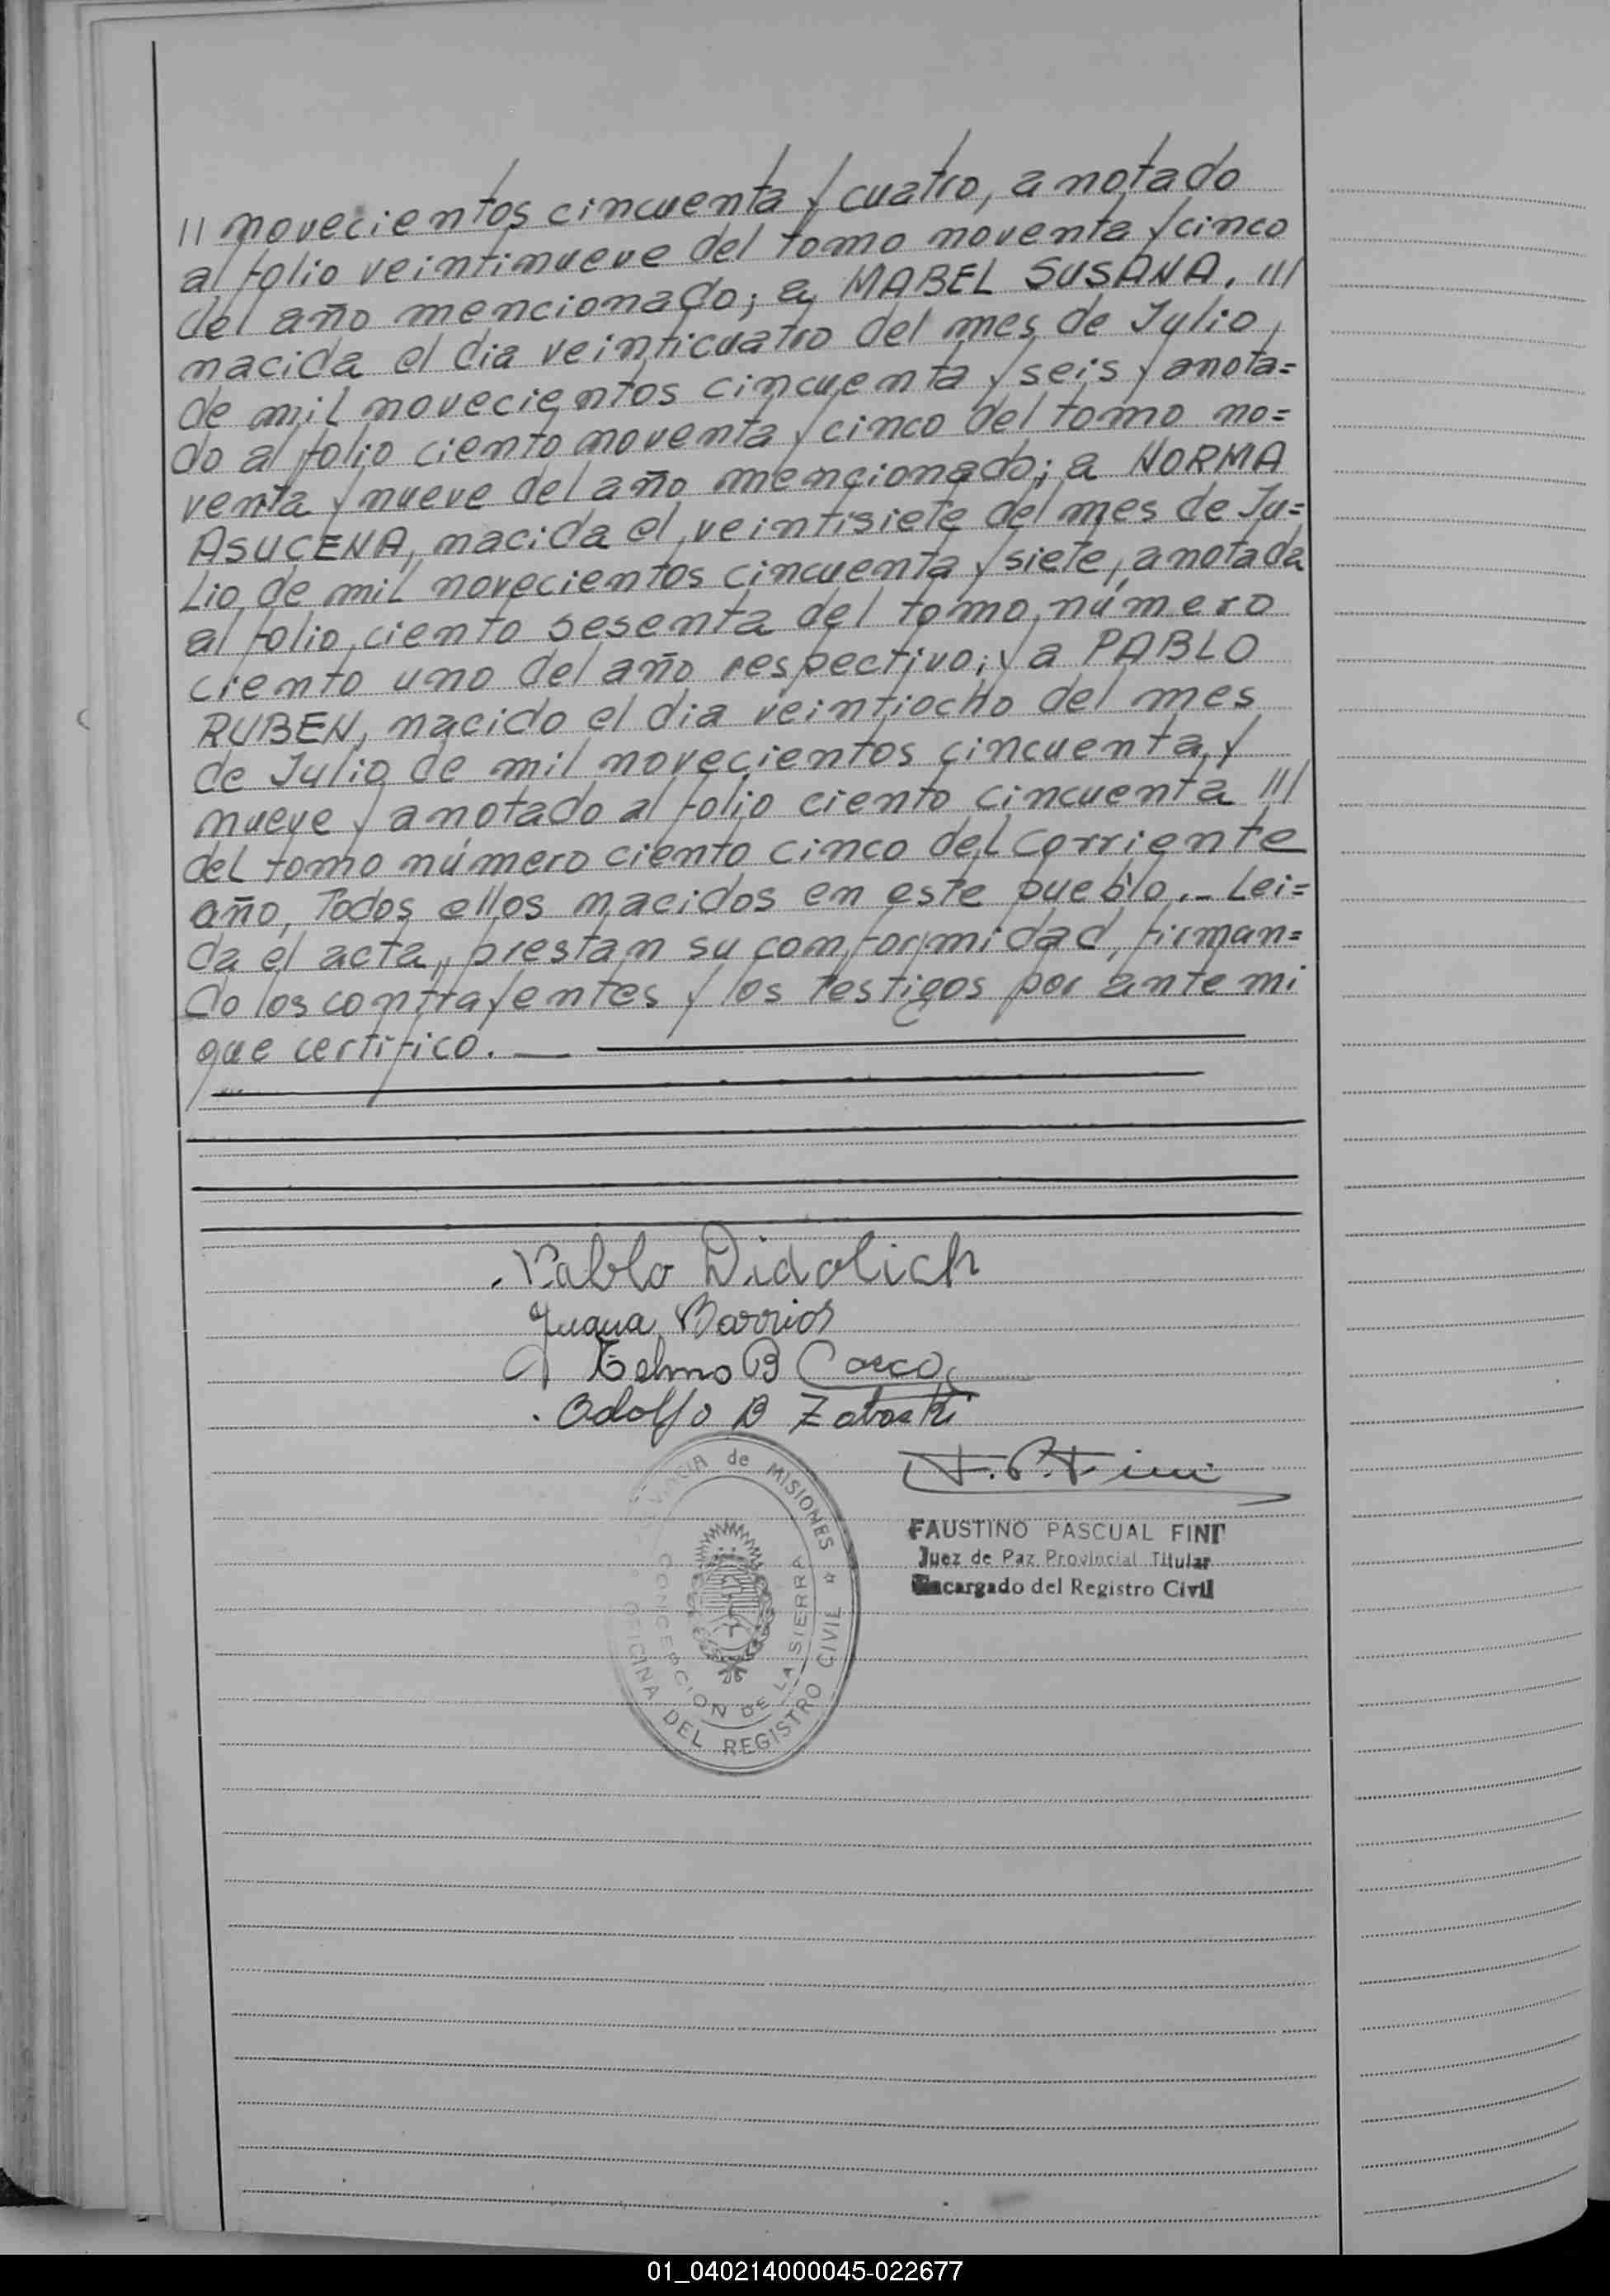 // novecientos cincuenta y cuatro, anotado
al folio veintinueve del tomo noventa y cinco
del año mencionado; a MABEL SUSANA, ///
nacida el dia veinticuatro del mes de Julio,
de mil novecientos cincuenta y seis y anota=
do al folio ciento noventa y cinco del tomo no=
venta y nueve del año mencionado; a NORMA
ASUCENA, nacida el veintisiete del mes de Ju=
lio de mil novecientos cincuenta y siete, anotada
al folio ciento sesenta del tomo número
ciento uno del año respectivo; y a PABLO
RUBEN, nacido el dia veintiocho del mes
de Julio de mil novecientos cincuenta y
nueve y anotado al folio ciento cincuenta ///
del tomo número ciento cinco del corriente
año, Todos ellos nacidos en este pueblo.- Lei=
da el acta, prestan su conformidad, firman=
do los contrayentes y los testigos por ante mi
que certifico. —
Pablo Didolich
Juana Barrios
Telmo B
Adolfo B
F. P. Fini
FAUSTINO PASCUAL FINI
Juez de Paz Provincial Titular
Encargado del Registro Civil
PROVINCIA de MISIONES ☆
OFICINA DEL REGISTRO CIVIL
CONCEPCION DE LA SIERRA
01_040214000045-022677